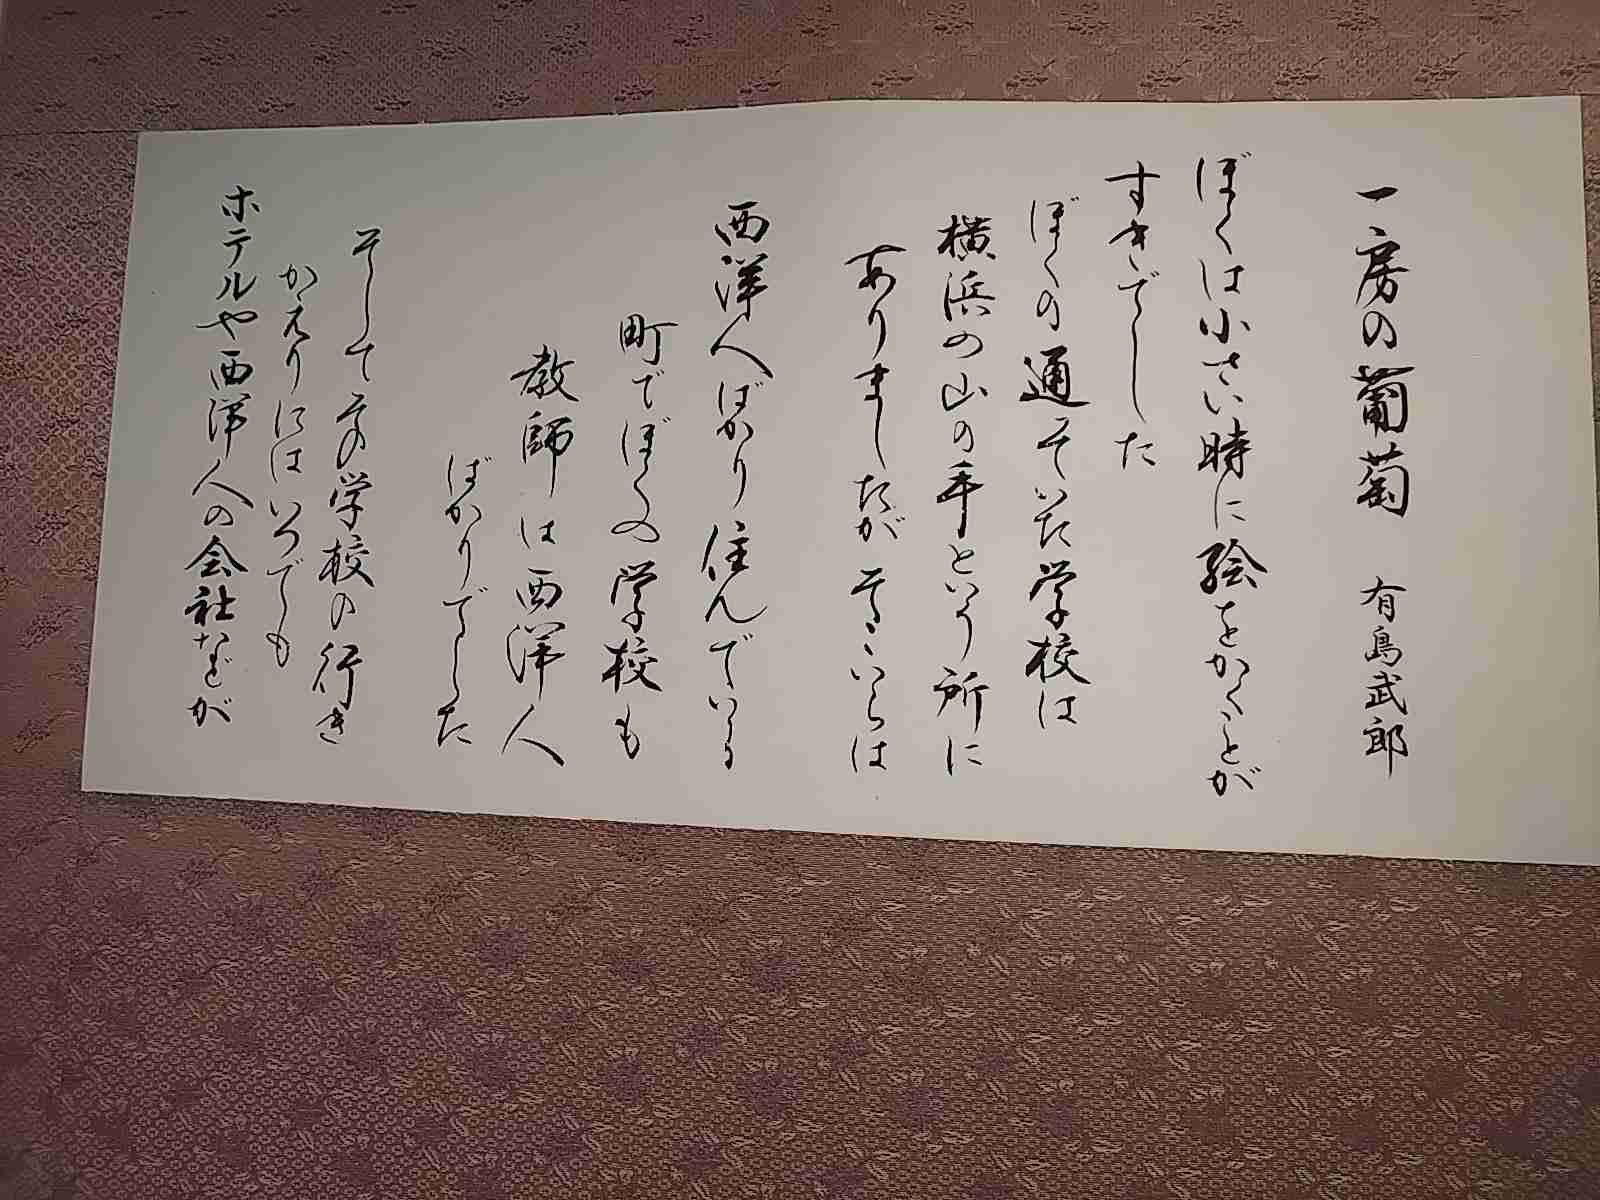 一房の葡萄　有島武郎
ぼくは小さい時に絵をかくことが
すきでした
ぼくの通っていた学校は
横浜の山の手という所に
ありましたがそこいらは
西洋人ばかり住んでいる
町でぼくの学校も
教師は西洋人
ばかりでした
そしてその学校の行き
かえりにはいつでも
ホテルや西洋人の会社などが